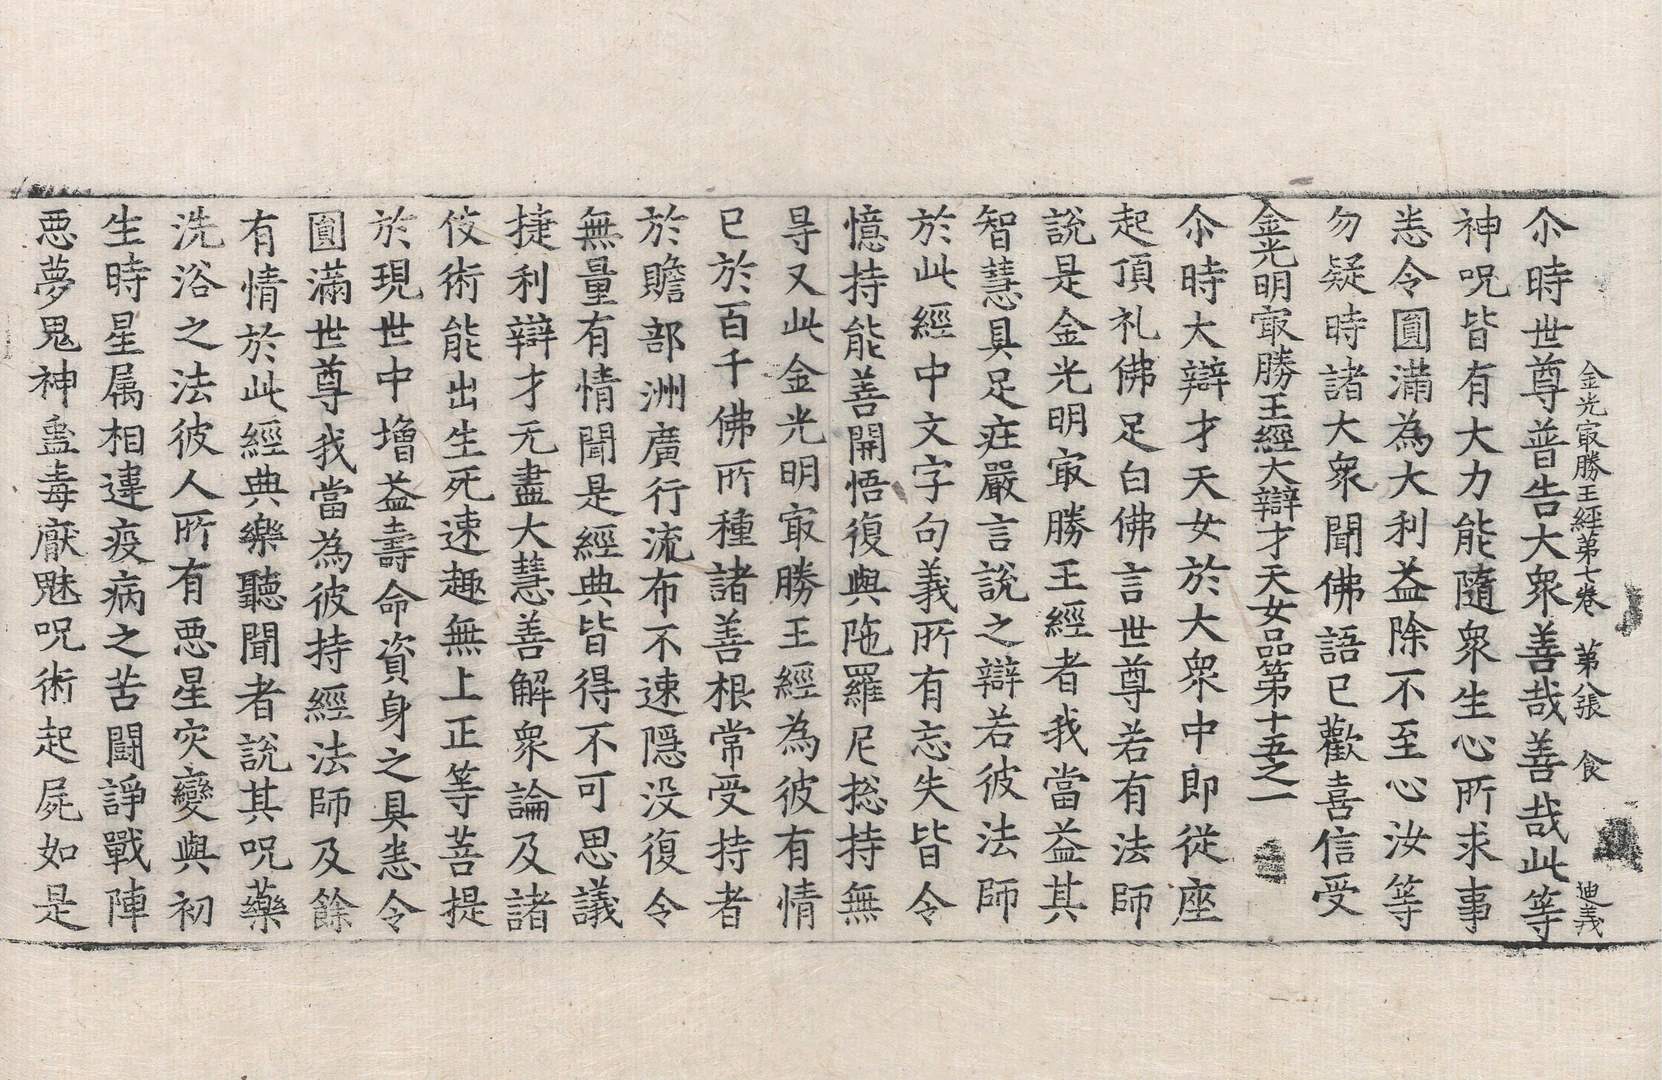 金光㝡勝王經第七卷　第八張　食　迪義
尒時世尊普告大衆善哉善哉此等
神呪皆有大力能隨衆生心所求事
悉令圓滿為大利益除不至心汝等
勿疑時諸大衆聞佛語已歡喜信受
金光明㝡勝王經大辯才天女品第十五之一
尒時大辯才天女於大衆中即從座
起頂礼佛足白佛言世尊若有法師
說是金光明㝡勝王經者我當益其
智慧具足莊嚴言說之辯若彼法師
於此經中文字句義所有忘失皆令
憶持能善開悟復與陁羅尼揔持無
㝵又此金光明㝡勝王經為彼有情
已於百千佛所種諸善根常受持者
於贍部洲廣行流布不速隱没復令
無量有情聞是經典皆得不可思議
捷利辯才无盡大慧善解衆論及諸
伎術能出生死速趣無上正等菩提
於現世中增益壽命資身之具悉令
圓滿世尊我當為彼持經法師及餘
有情於此經典樂聽聞者說其呪藥
洗浴之法彼人所有惡星灾變與初
生時星属相違疫病之苦鬪諍戰陣
惡夢鬼神蠱毒厭魅呪術起屍如是